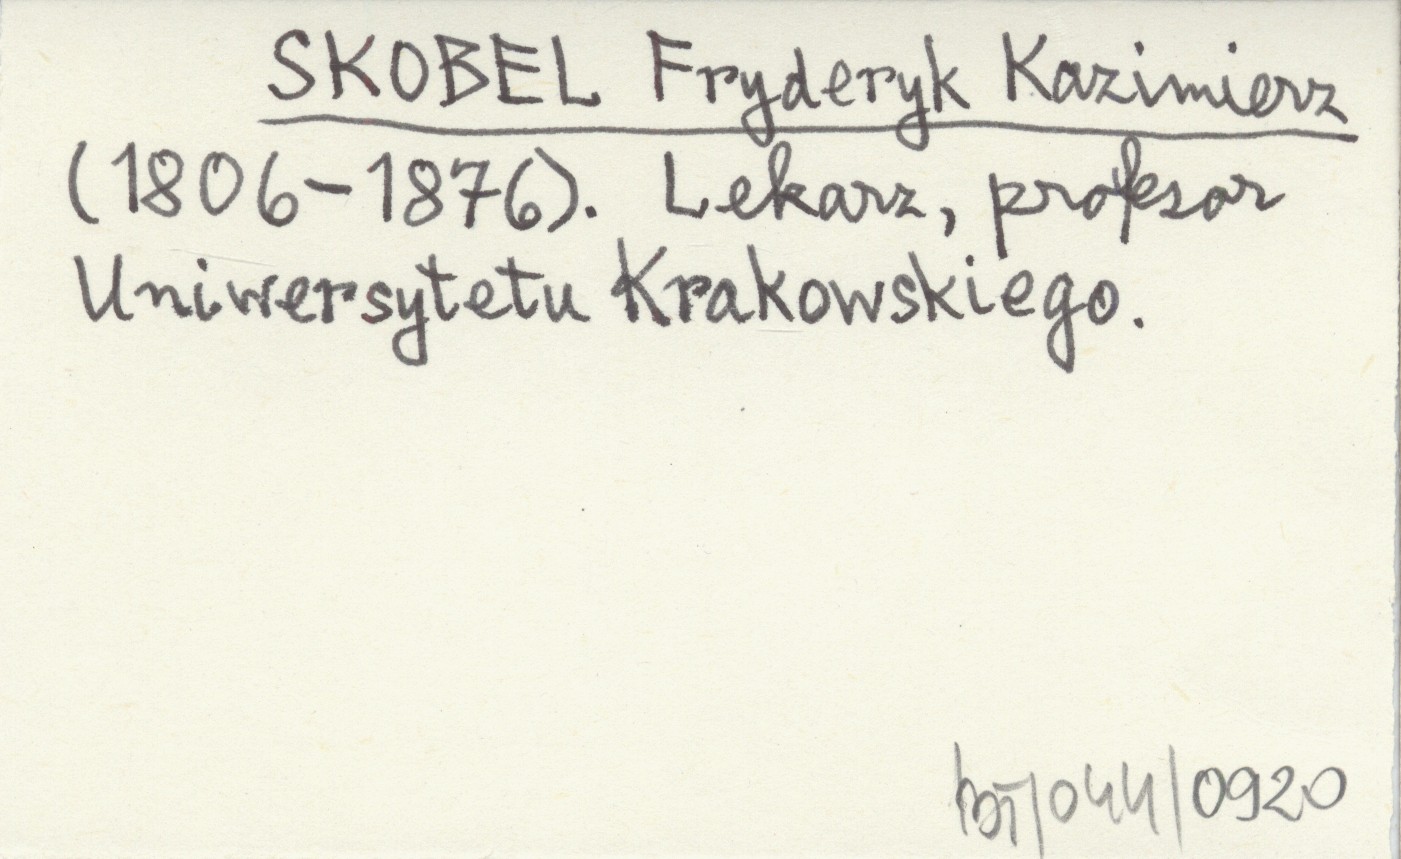 SKOBEL Fryderyk Kazimierz
(1806-1876). Lekarz, profesor
Uniwersytetu Krakowskiego.
/044/0920